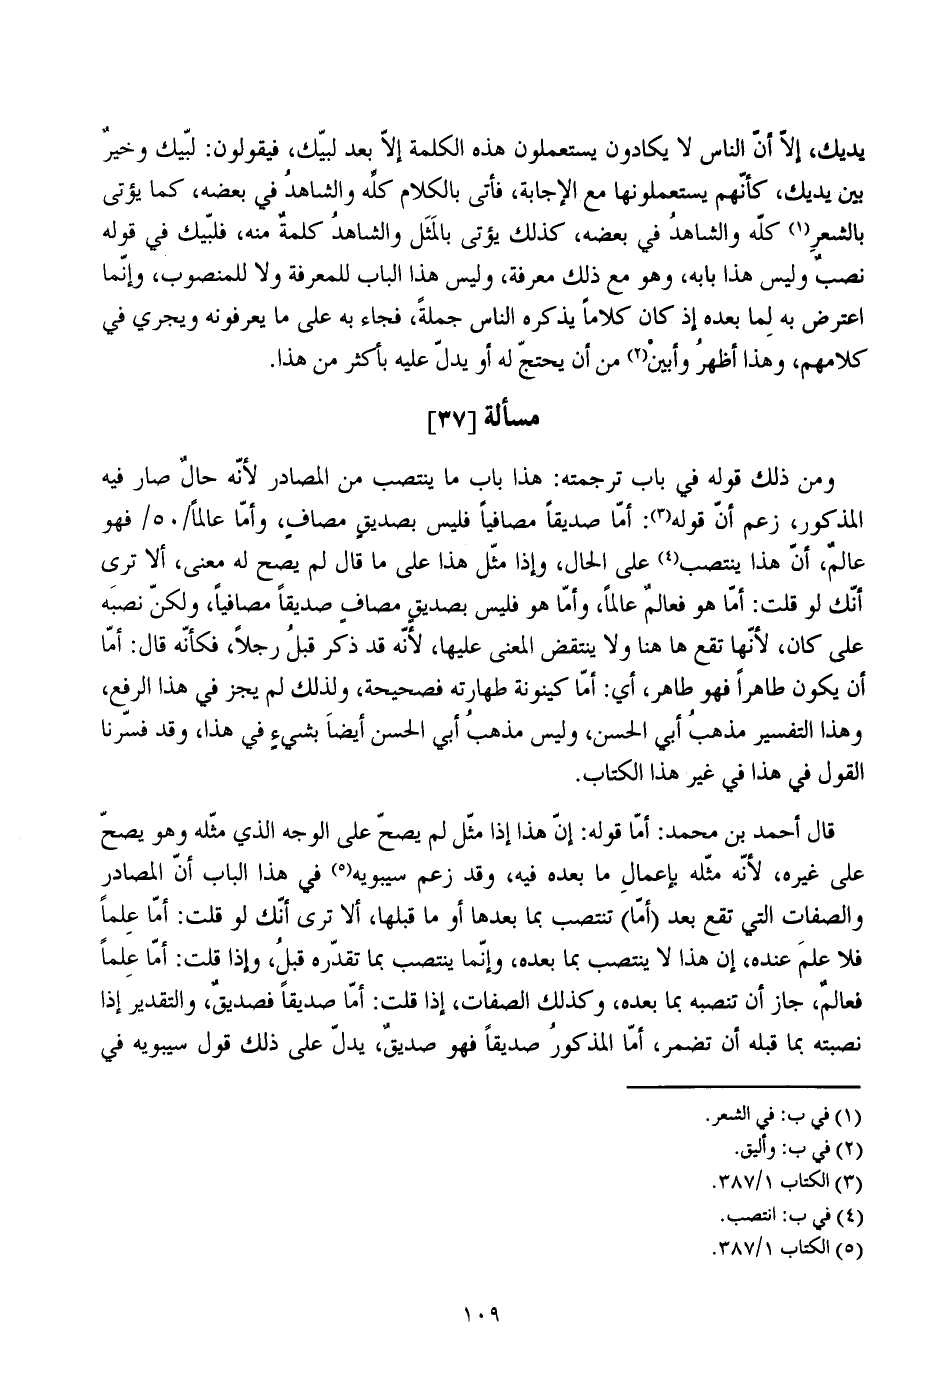 يديك، إلاّ أنّ الناس لا يكادون يستعملون هذه الكلمة إلاّ بعد لبّيك، فيقولون: لبّيك وخيرٌ
بين يديك، كأنّهم يستعملونها مع الإجابة، فأتى بالكلام كلِّه والشاهدُ في بعضه، كما يؤتى
بالشعرِ(١) كلّه والشاهدُ في بعضه، كذلك يؤتى بالمَثَل والشاهدُ كلمةٌ منه، فلبّيك في قوله
نصبٌ وليس هذا بابه، وهو مع ذلك معرفة، وليس هذا الباب للمعرفة ولا للمنصوب، وإنّما
اعترض به لِما بعده إذ كان كلاماً يذكره الناس جملةً، فجاء به على ما يعرفونه ويجري في
كلامهم، وهذا أظهرُ وأبينْ(٢) من أن يحتجّ له أو يدلّ عليه بأكثر من هذا.
مسألة [٣٧]
ومن ذلك قوله في باب ترجمته: هذا باب ما ينتصب من المصادر لأنّه حالٌ صار فيه
المذكور، زعم أنّ قوله(٣): أمّا صديقاً مصافياً فليس بصديقٍ مصافٍ، وأمّا عالماً/٥٠/ فهو
عالمٌ، أنّ هذا ينتصب(٤) على الحال، وإذا مثّل هذا على ما قال لم يصح له معنى، ألا ترى
أنّك لو قلت: أمّا هو فعالمٌ عالماً، وأمّا هو فليس بصديقٍ مصافٍ صديقاً مصافياً، ولكنّ نصبَه
على كان، لأنّها تقع ها هنا ولا ينتقض المعنى عليها، لأنّه قد ذكر قبلُ رجلاً، فكأنّه قال: أمّا
أن يكون طاهراً فهو طاهر، أي: أمّا كينونة طهارته فصحيحة، ولذلك لم يجز في هذا الرفع،
وهذا التفسير مذهبُ أبي الحسن، وليس مذهبُ أبي الحسن أيضاً بشيءٍ في هذا، وقد فسّرنا
القول في هذا في غير هذا الكتاب.
قال أحمد بن محمد: أمّا قوله: إنّ هذا إذا مثّل لم يصحّ على الوجه الذي مثّله وهو يصحّ
على غيره، لأنّه مثّله بإعمالِ ما بعده فيه، وقد زعم سيبويه(٥) في هذا الباب أنّ المصادر
والصفات التي تقع بعد (أمّا) تنتصب بما بعدها أو ما قبلها، ألا ترى أنّك لو قلت: أمّا عِلماً
فلا علمَ عنده، إن هذا لا ينتصب بما بعده، وإنّما ينتصب بما تقدّره قبلُ، وإذا قلت: أمّا عِلماً
فعالمٌ، جاز أن تنصبه بما بعده، وكذلك الصفات، إذا قلت: أمّا صديقاً فصديقٌ، والتقدير إذا
نصبته بما قبله أن تضمر، أمّا المذكورُ صديقاً فهو صديقٌ، يدلّ على ذلك قول سيبويه في
(١) في ب: في الشعر.
(٢) في ب: وأليق.
(٣) الكتاب ٣٨٧/١.
(٤) في ب: انتصب.
(٥) الكتاب ٣٨٧/١.
١٠٩